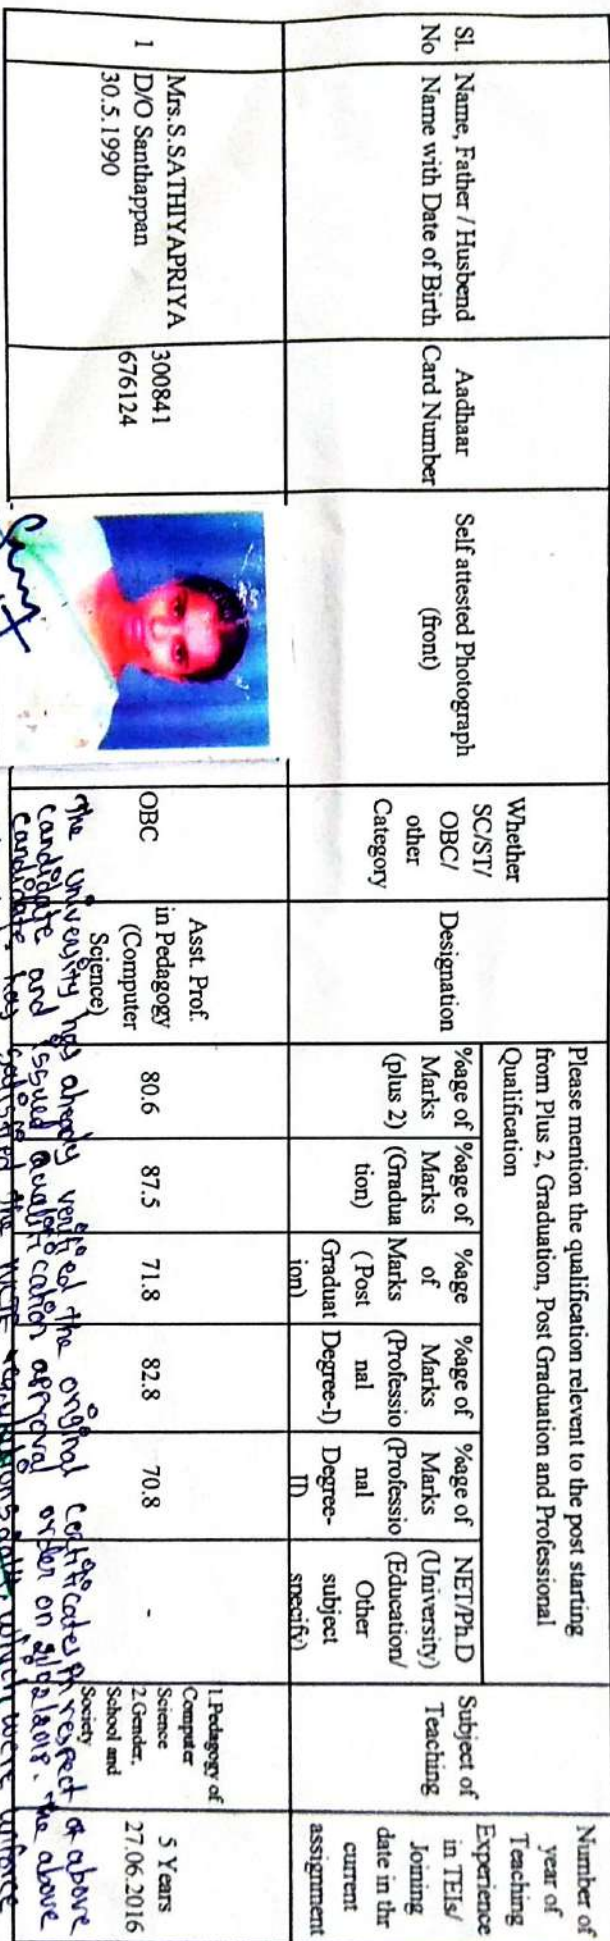 Sl.
No
Name, Father / Husbend
Name with Date of Birth
Aadhaar
Card Number
Self attested Photograph
(front)
Whether
SC/ST/
OBC/
other
Category
Designation
Please mention the qualification relevent to the post starting
from Plus 2, Graduation, Post Graduation and Professional
Qualification
%age of
Marks
(plus 2)
%age of
Marks
(Gradua
tion)
%age
of
Marks
( Post
Graduat
ion)
%age of
Marks
(Professio
nal
Degree-I)
%age of
Marks
(Professio
nal
Degree-
II)
NET/Ph.D
(University)
(Education/
Other
subject
specify)
Subject of
Teaching
Number of
year of
Teaching
Experience
in TEIs/
Joining
date in thr
current
assignment
1
Mrs.S.SATHIYAPRIYA
D/O Santhappan
30.5.1990
300841
676124
OBC
Asst. Prof.
in Pedagogy
(Computer
Science)
80.6
87.5
71.8
82.8
70.8
-
1.Pedagogy of
Computer
Science
2.Gender,
School and
Society
5 Years
27.06.2016
The University has already verified the original certificates in respect of above
candidate and issued qualification approval order on. The above
candidate has satisfied the NCTE regulations which were